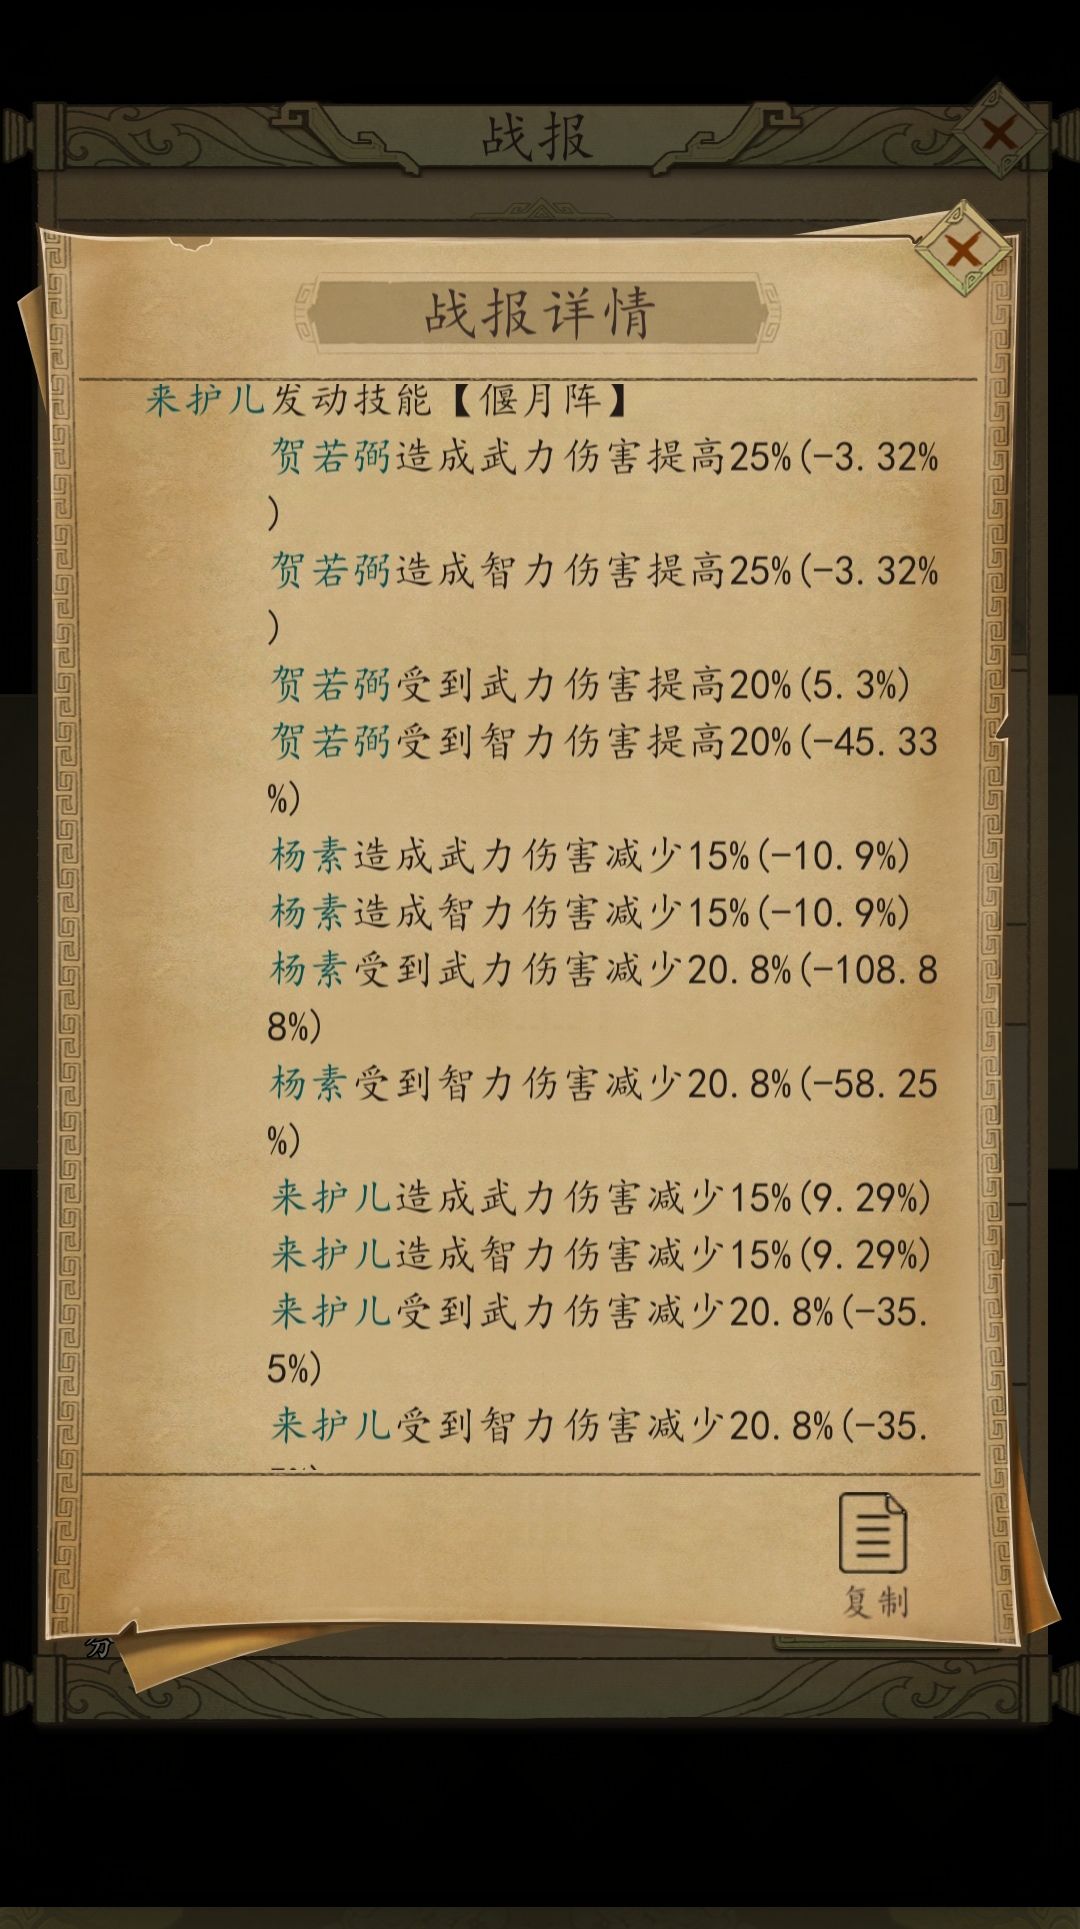 战报
战报详情
来护儿发动技能【偃月阵】
贺若弼造成武力伤害提高25%(-3.32%
)
贺若弼造成智力伤害提高25%(-3.32%
)
贺若弼受到武力伤害提高20%(5.3%)
贺若弼受到智力伤害提高20%(-45.33
%)
杨素造成武力伤害减少15%(-10.9%)
杨素造成智力伤害减少15%(-10.9%)
杨素受到武力伤害减少20.8%(-108.8
8%)
杨素受到智力伤害减少20.8%(-58.25
%)
来护儿造成武力伤害减少15%(9.29%)
来护儿造成智力伤害减少15%(9.29%)
来护儿受到武力伤害减少20.8%(-35.
5%)
来护儿受到智力伤害减少20.8%(-35.
复制